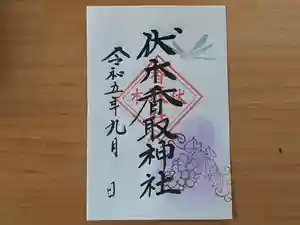 伏木香取神社
令和五年九月 日